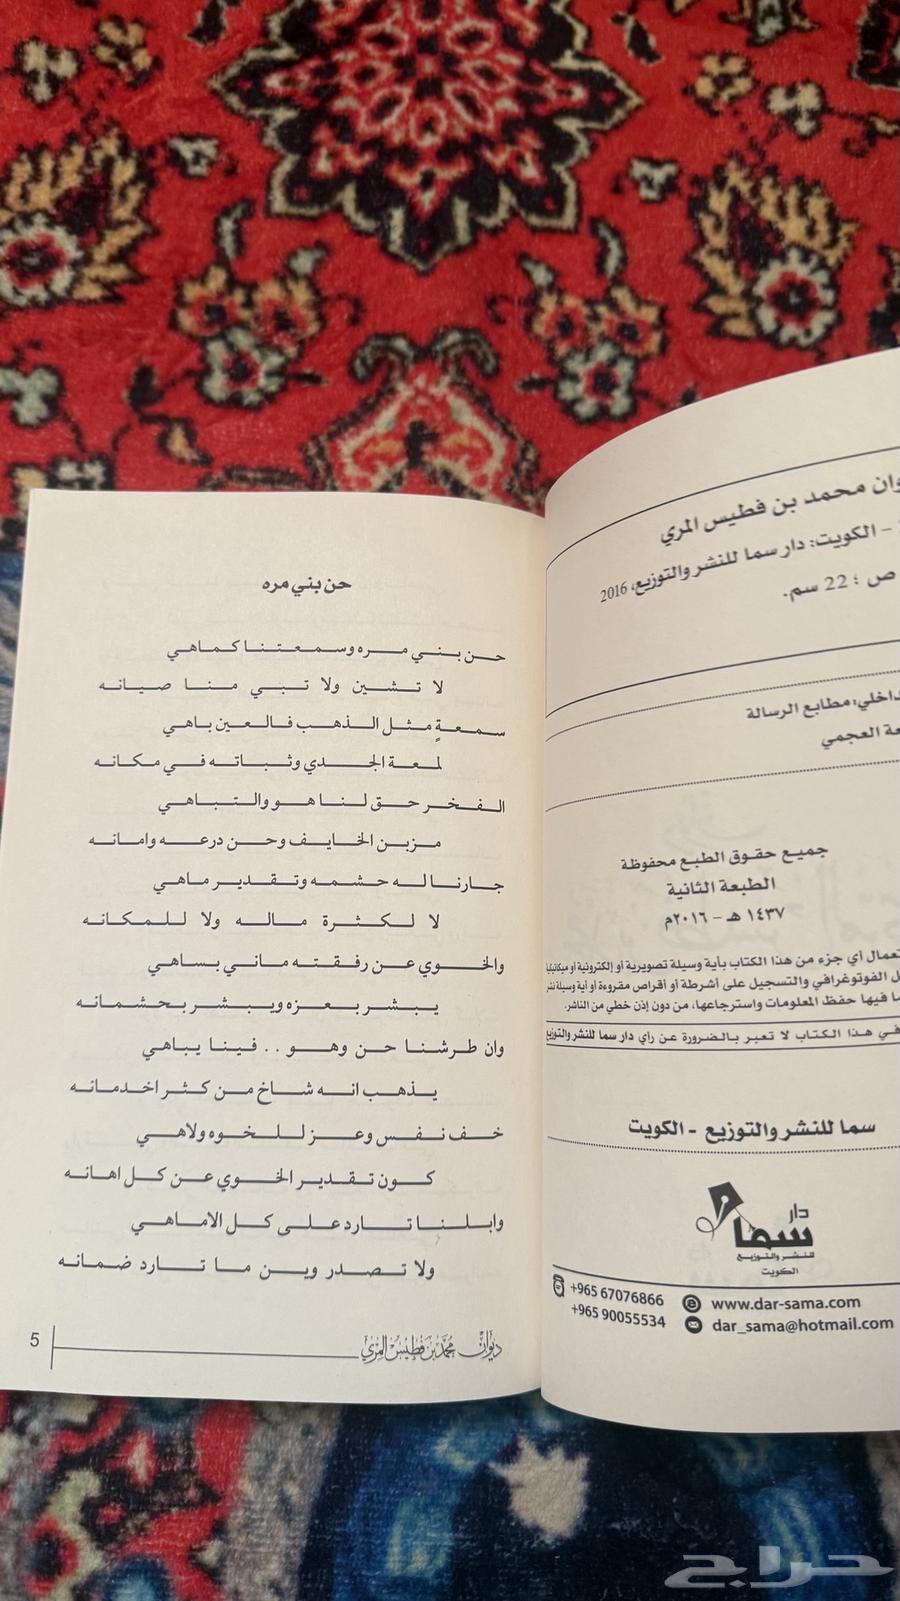 وان محمد بن فطيس المري
- الكويت: دار سما للنشر والتوزيع، 2016
ص ؛ 22 سم.
داخلي: مطابع الرسالة
عة العجمي
جميع حقوق الطبع محفوظة
الطبعة الثانية
١٤٣٧ هـ - ٢٠١٦م
تعمال أي جزء من هذا الكتاب بأية وسيلة تصويرية أو إلكترونية أو ميكانيكية
ل الفوتوغرافي والتسجيل على أشرطة أو أقراص مقروءة أو أية وسيلة نشر
ما فيها حفظ المعلومات واسترجاعها، من دون إذن خطي من الناشر.
في هذا الكتاب لا تعبر بالضرورة عن رأي دار سما للنشر والتوزيع
سما للنشر والتوزيع - الكويت
دار
سما
للنشر والتوزيع
الكويت
+965 67076866
+965 90055534
www.dar-sama.com
dar_sama@hotmail.com
حن بني مره
حن بني مره وسمعتنا كماهي
لا تشين ولا تبي منا صيانه
سمعةٍ مثل الذهب فالعين باهي
لمعة الجدي وثباته في مكانه
الفخر حق لنا هو والتباهي
مزبن الخايف وحن درعه وامانه
جارنا له حشمه وتقدير ماهي
لا لكثرة ماله ولا للمكانه
والخوي عن رفقته ماني بساهي
يبشر بعزه ويبشر بحشمانه
وان طرشنا حن وهو .. فينا يباهي
يذهب انه شاخ من كثر اخدمانه
خف نفس وعز للخوه ولاهي
كون تقدير الخوي عن كل اهانه
وابلنا تارد على كل الاماهي
ولا تصدر وين ما تارد ضمانه
ديوان محمد بن فطيس المري
5
حراج